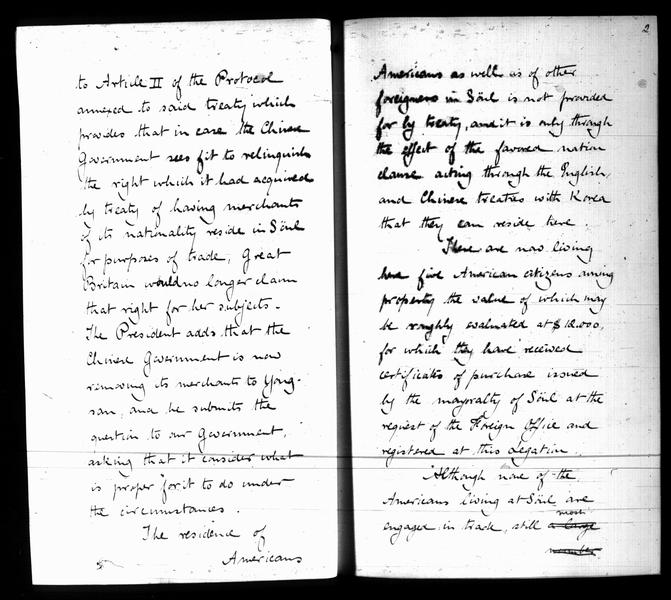 to Article II of the Protocol
annexed to said treaty which
provides that in case the Chinese
Government sees fit to relinquish
the right which it had acquired
by treaty of having merchants
of its nationality reside in Söul
for purposes of trade, Great
Britain would no longer claim
that right for her subjects.
The President adds that the
Chinese Government is now
removing its merchants to Yong-
san, and he submits the
question to our Government,
asking that it consider what
is proper for it to do under
the circumstances.
The residence of
Americans
2
Americans as well as of other
foreigners in Söul is not provided
for by treaty, and it is only through
the effect of the favored nation
clause acting through the English,
and Chinese treaties with Korea
that they can reside here.
There are now living
here five American citizens owning
property the value of which may
be roughly evaluated at $12.000,
for which they have received
certificates of purchase issued
by the mayorality of Söul at the
request of the Foreign Office and
registered at this Legation.
Although none of the
Americans living at Söul are
most
engaged in trade, still a large
number